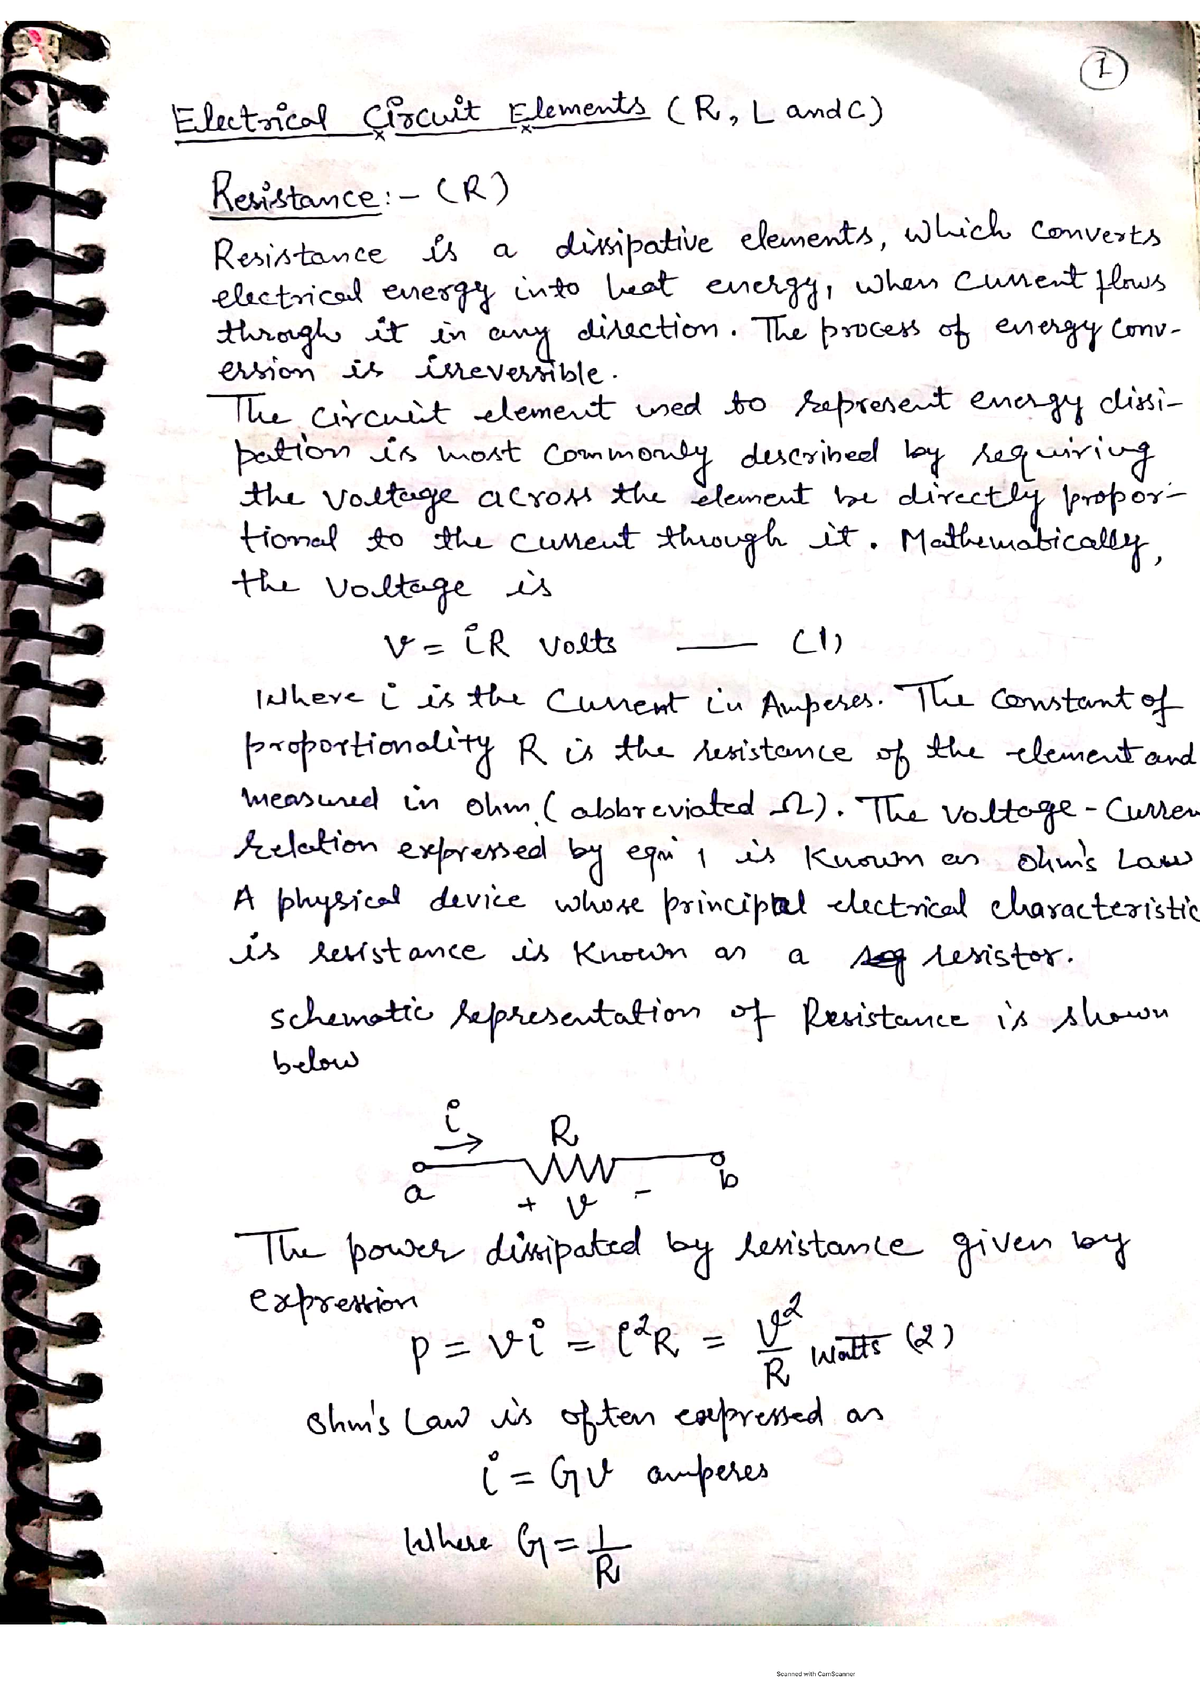 1
Electrical Circuit Elements (R, L and C)
Resistance:- (R)
Resistance is a dissipative elements, which converts
electrical energy into heat energy, when current flows
through it in any direction. The process of energy conv-
ersion is irreversible.
The circuit element used to represent energy dissi-
pation is most commonly described by requiring
the voltage across the element be directly propor-
tional to the current through it. Mathematically,
the voltage is
v = iR volts —— (1)
Where i is the current in Amperes. The constant of
proportionality R is the resistance of the element and
measured in ohm (abbreviated Ω). The voltage-curren
relation expressed by eqn 1 is known as ohm's Law
A physical device whose principal electrical characteristic
is resistance is known as a resistor.
schematic representation of Resistance is shown
below
i R
a + v - b
The power dissipated by resistance given by
expression
p = vi = i²R = v²/R watts (2)
ohm's Law is often expressed as
i = Gv amperes
Where G = 1/R
Scanned with CamScanner